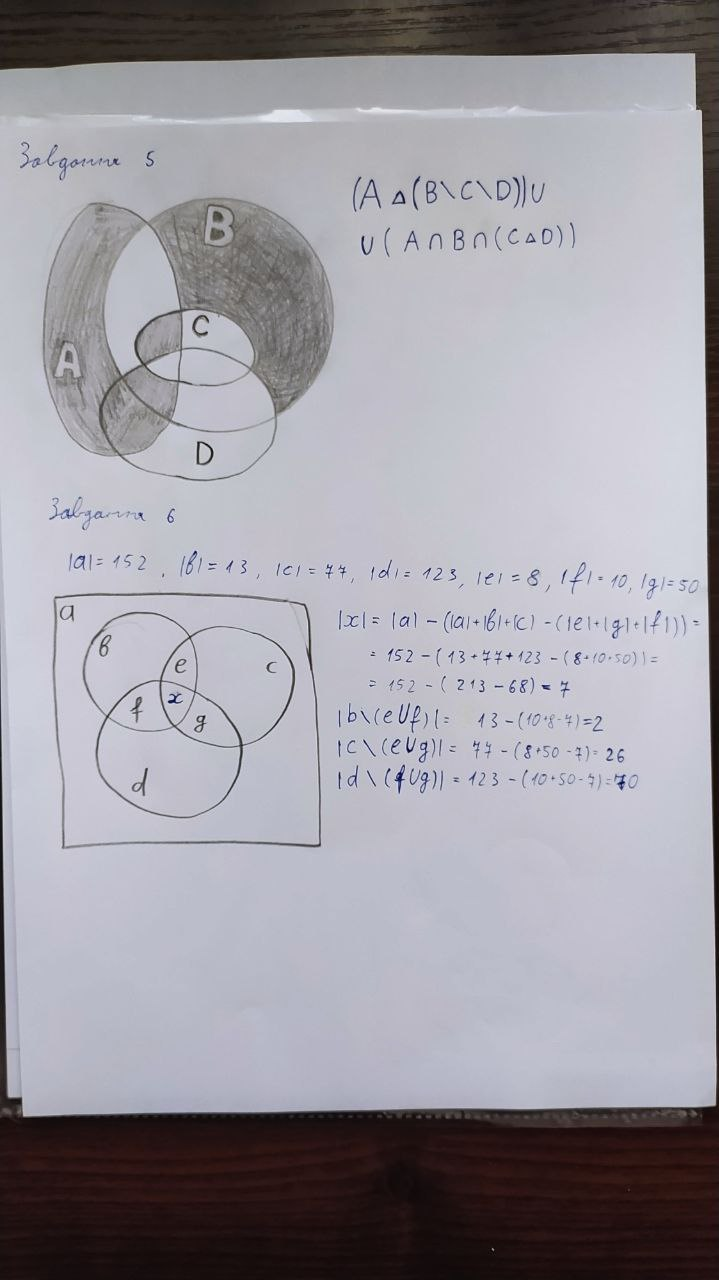 Завдання 5
(A △ (B\C\D)) ∪
∪ ( A ∩ B ∩ (C △ D))
B
C
A
D
Завдання 6
|a| = 152 , |b| = 13 , |c| = 77, |d| = 123, |e| = 8, |f| = 10, |g| = 50
a
b
e
c
f
x
g
d
|x| = |a| - (|a|+|b|+|c| - (|e|+|g|+|f|)) =
= 152 - (13 + 77 + 123 - (8+10+50)) =
= 152 - ( 213 - 68) = 7
|b \ (e ∪ f)| = 13 - (10+8-7) = 2
|c \ (e ∪ g)| = 77 - (8+50-7) = 26
|d \ (f ∪ g)| = 123 - (10+50-7) = 70